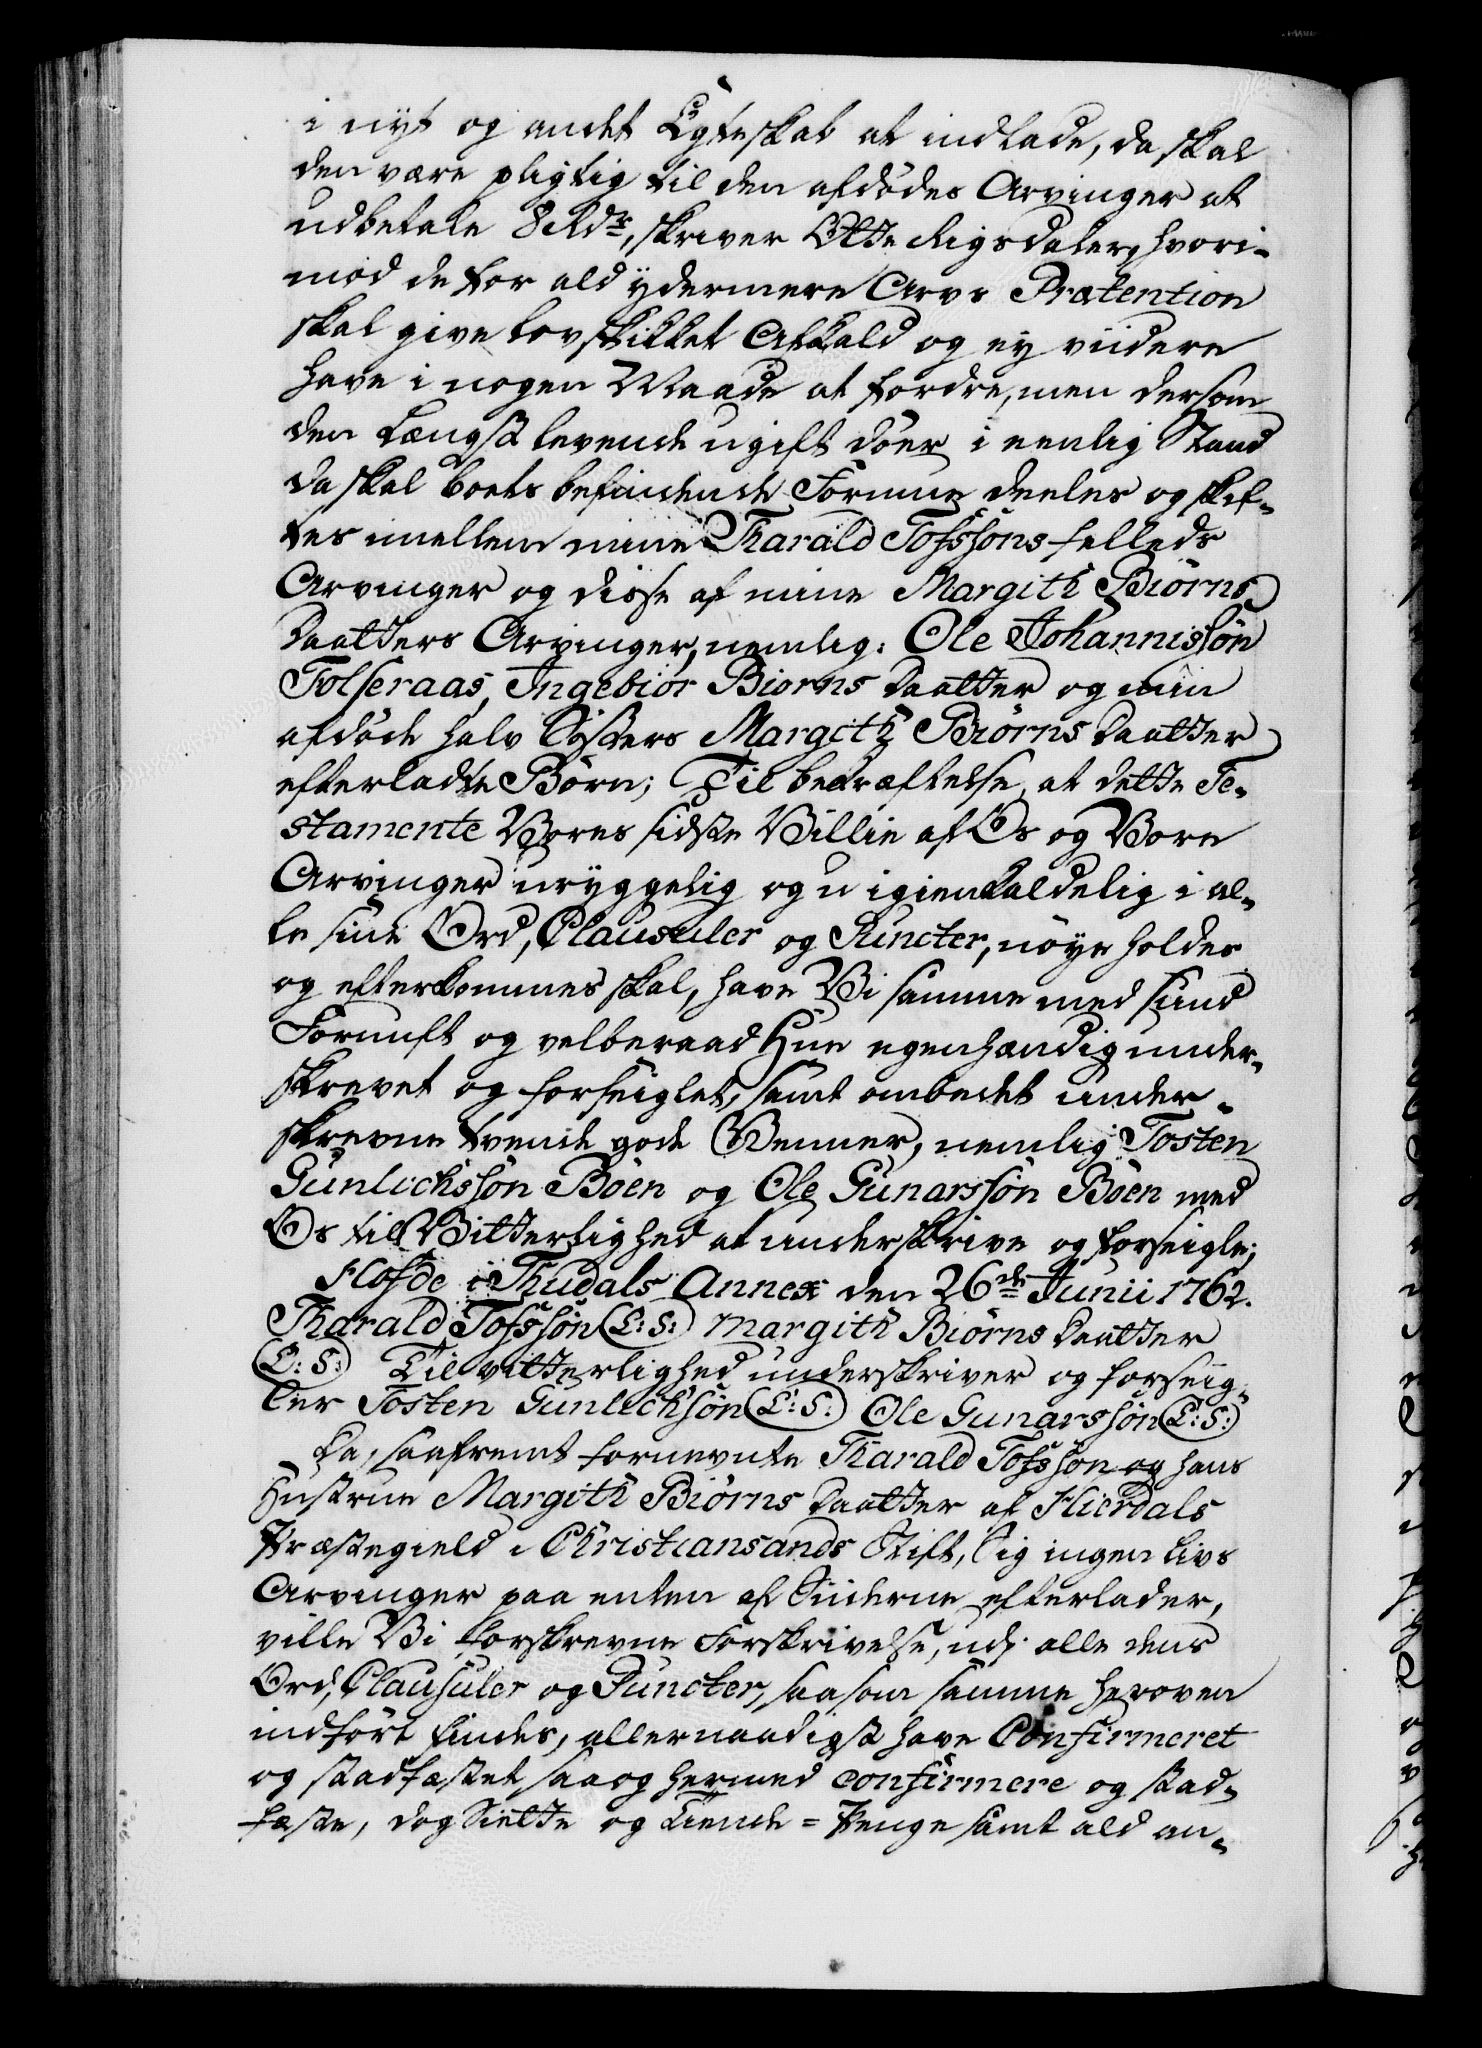 i nyt og andet Egteskab at indlade, da skal
den være pligtig til den afdødes Arvinger at
udbetale 8 Rdr, skriver Otte Rigsdaler, hvori-
mod de for ald ydermere Arvs Prætention
skal give lovskikket Afkald og ey viidere
have i nogen Maade at fordre, men dersom
den Længstlevende ugift døer i eenlig Stand
da skal boets befindende Formue deeles og skif-
tes imellem mine Tharald Tofssøns felleds
Arvinger og disse af mine Margith Biørns
Daatters Arvinger, nemlig: Ole Johannissøn
Folseraas, Ingebior Biorns Daatter og min
afdøde halv Søsters Margith Biørns Daatter
efterladte Børn; Til bekræftelse at dette Te-
stamente Vores sidste Villie af Os og Vore
Arvinger uryggelig og u igienkaldelig i al-
le sine Ord, Clausuler og Puncter, nøye holdes
og efterkommes skal, have Vi samme med sund
Fornuft og velberaad Hue egenhændig under-
skrevet og forseiglet, samt ombedet under-
skrevne tvende gode Venner, nemlig Tosten
Gunlechssøn Böen og Ole Gunarssøn Böen med
Os til Vitterlighed at underskrive og forseigle;
Flofde i Thudals Annex den 26de Junii 1762.
Tharald Tofssøn (L: S:) Margith Biörns Daatter
(L: S:) Til vitterlighed underskriver og forseig-
ler Tosten Gunlechsøn (L: S:) Ole Gunarssøn (L: S:)
Da, saafremt fornevnte Tharald Tofssøn og hans
Hustrue Margith Biørns Daatter af Hierdals
Præstegield i Christiansands Stift, Sig ingen Livs
Arvinger paa enten af Siderne efterlader,
ville Vi forskrevne Forskrivelse, udi alle dens
Ord, Clausuler og Puncter, saasom samme heroven
indført findes, allernaadigst have Confirmeret
og stadfæstet saa og hermed confirmere og stad-
fæste, dog Siette og Tiende=Penge samt ald an-